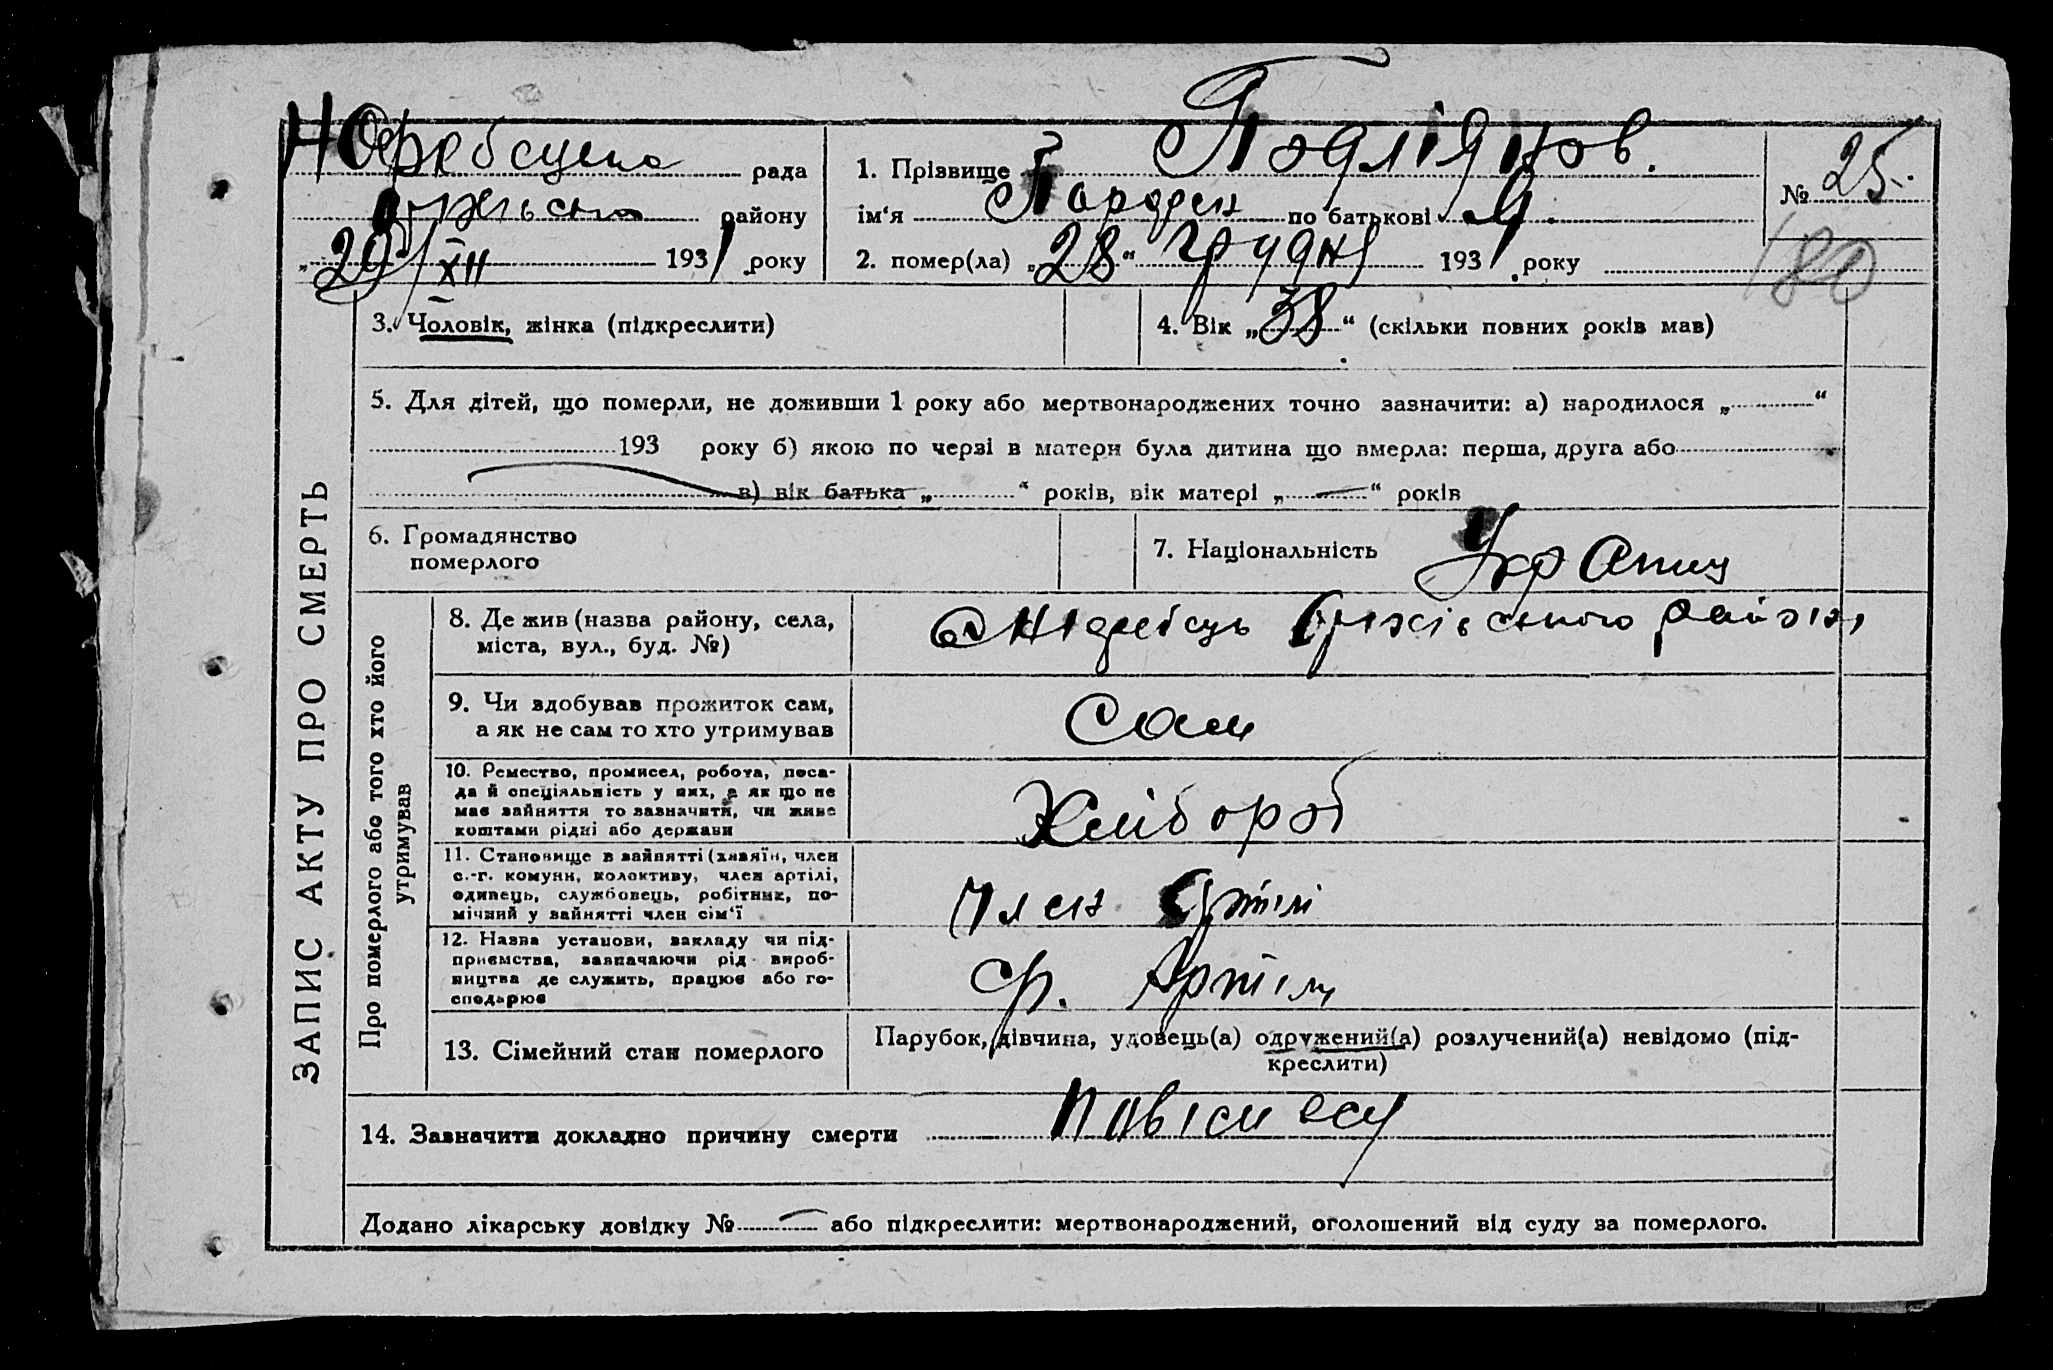 рада
1. Прізвище
№ 25.
району
ім'я по батькові
180
29/XII 1931 року
2. помер(ла) „28“ грудня 1931 року
3. Чоловік, жінка (підкреслити)
4. Вік „38“ (скільки повних років мав)
5. Для дітей, що померли, не доживши 1 року або мертвонароджених точно зазначити: а) народилося „ “
193 року б) якою по черзі в матери була дитина що вмерла: перша, друга або
в) вік батька „ “ років, вік матері „—“ років
6. Громадянство
померлого
7. Національність
ЗАПИС АКТУ ПРО СМЕРТЬ
Про померлого або того хто його
утримував
8. Де жив (назва району, села,
міста, вул., буд. №)
9. Чи здобував прожиток сам,
а як не сам то хто утримував
Сам
10. Ремество, промисел, робота, поса-
да й спеціяльність у них, а як що не
має зайняття то зазначити, чи живе
коштами рідні або держави
Хлібороб
11. Становище в зайнятті (хазяїн, член
с.-г. комуни, колективу, член артілі,
одинець, службовець, робітник, по-
мічний у зайнятті член сім'ї
Член Артілі
12. Назва установи, закладу чи під-
приємства, зазначаючи рід вироб-
ництва де служить, працює або го-
сподарює
Артіль
13. Сімейний стан померлого
Парубок, дівчина, удовець(а) одружений(а) розлучений(а) невідомо (під-
креслити)
14. Зазначити докладно причину смерти
Додано лікарську довідку №— або підкреслити: мертвонароджений, оголошений від суду за померлого.